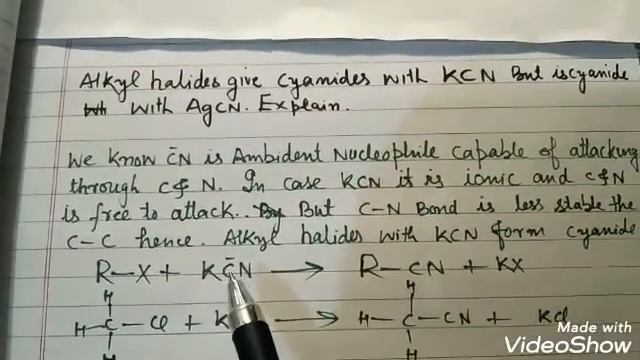 Alkyl halides give cyamides with KCN But iscyanide
with AgCN. Explain.
We know C̄N is Ambident Nucleophile capable of attacking
through C & N. In case KCN it is ionic and C & N
is free to attack. But C-N Bond is less stable the
C-C hence. Alkyl halides with KCN form cyanide
R-X + KC̄N → R-CN + KX
H H
H-C-Cl + K → H-C-CN + KCl
H H
Made with
VideoShow